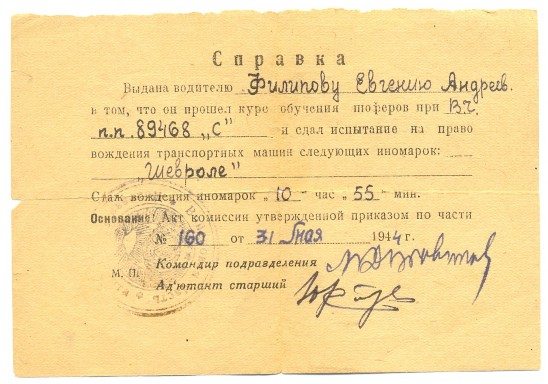 Справка
Выдана водителю Филипову Евгению Андреев.
в том, что он прошел курс обучения шоферов при В.Ч.
п.п. 89468 „С" и сдал испытание на право
вождения транспортных машин следующих иномарок:
„Шевроле"
Стаж вождения иномарок „10" час „55" мин.
Основание: Акт комиссии утвержденной приказом по части
№ 160 от 31 Мая 1944 г.
Командир подразделения
М. П.
Ад'ютант старший